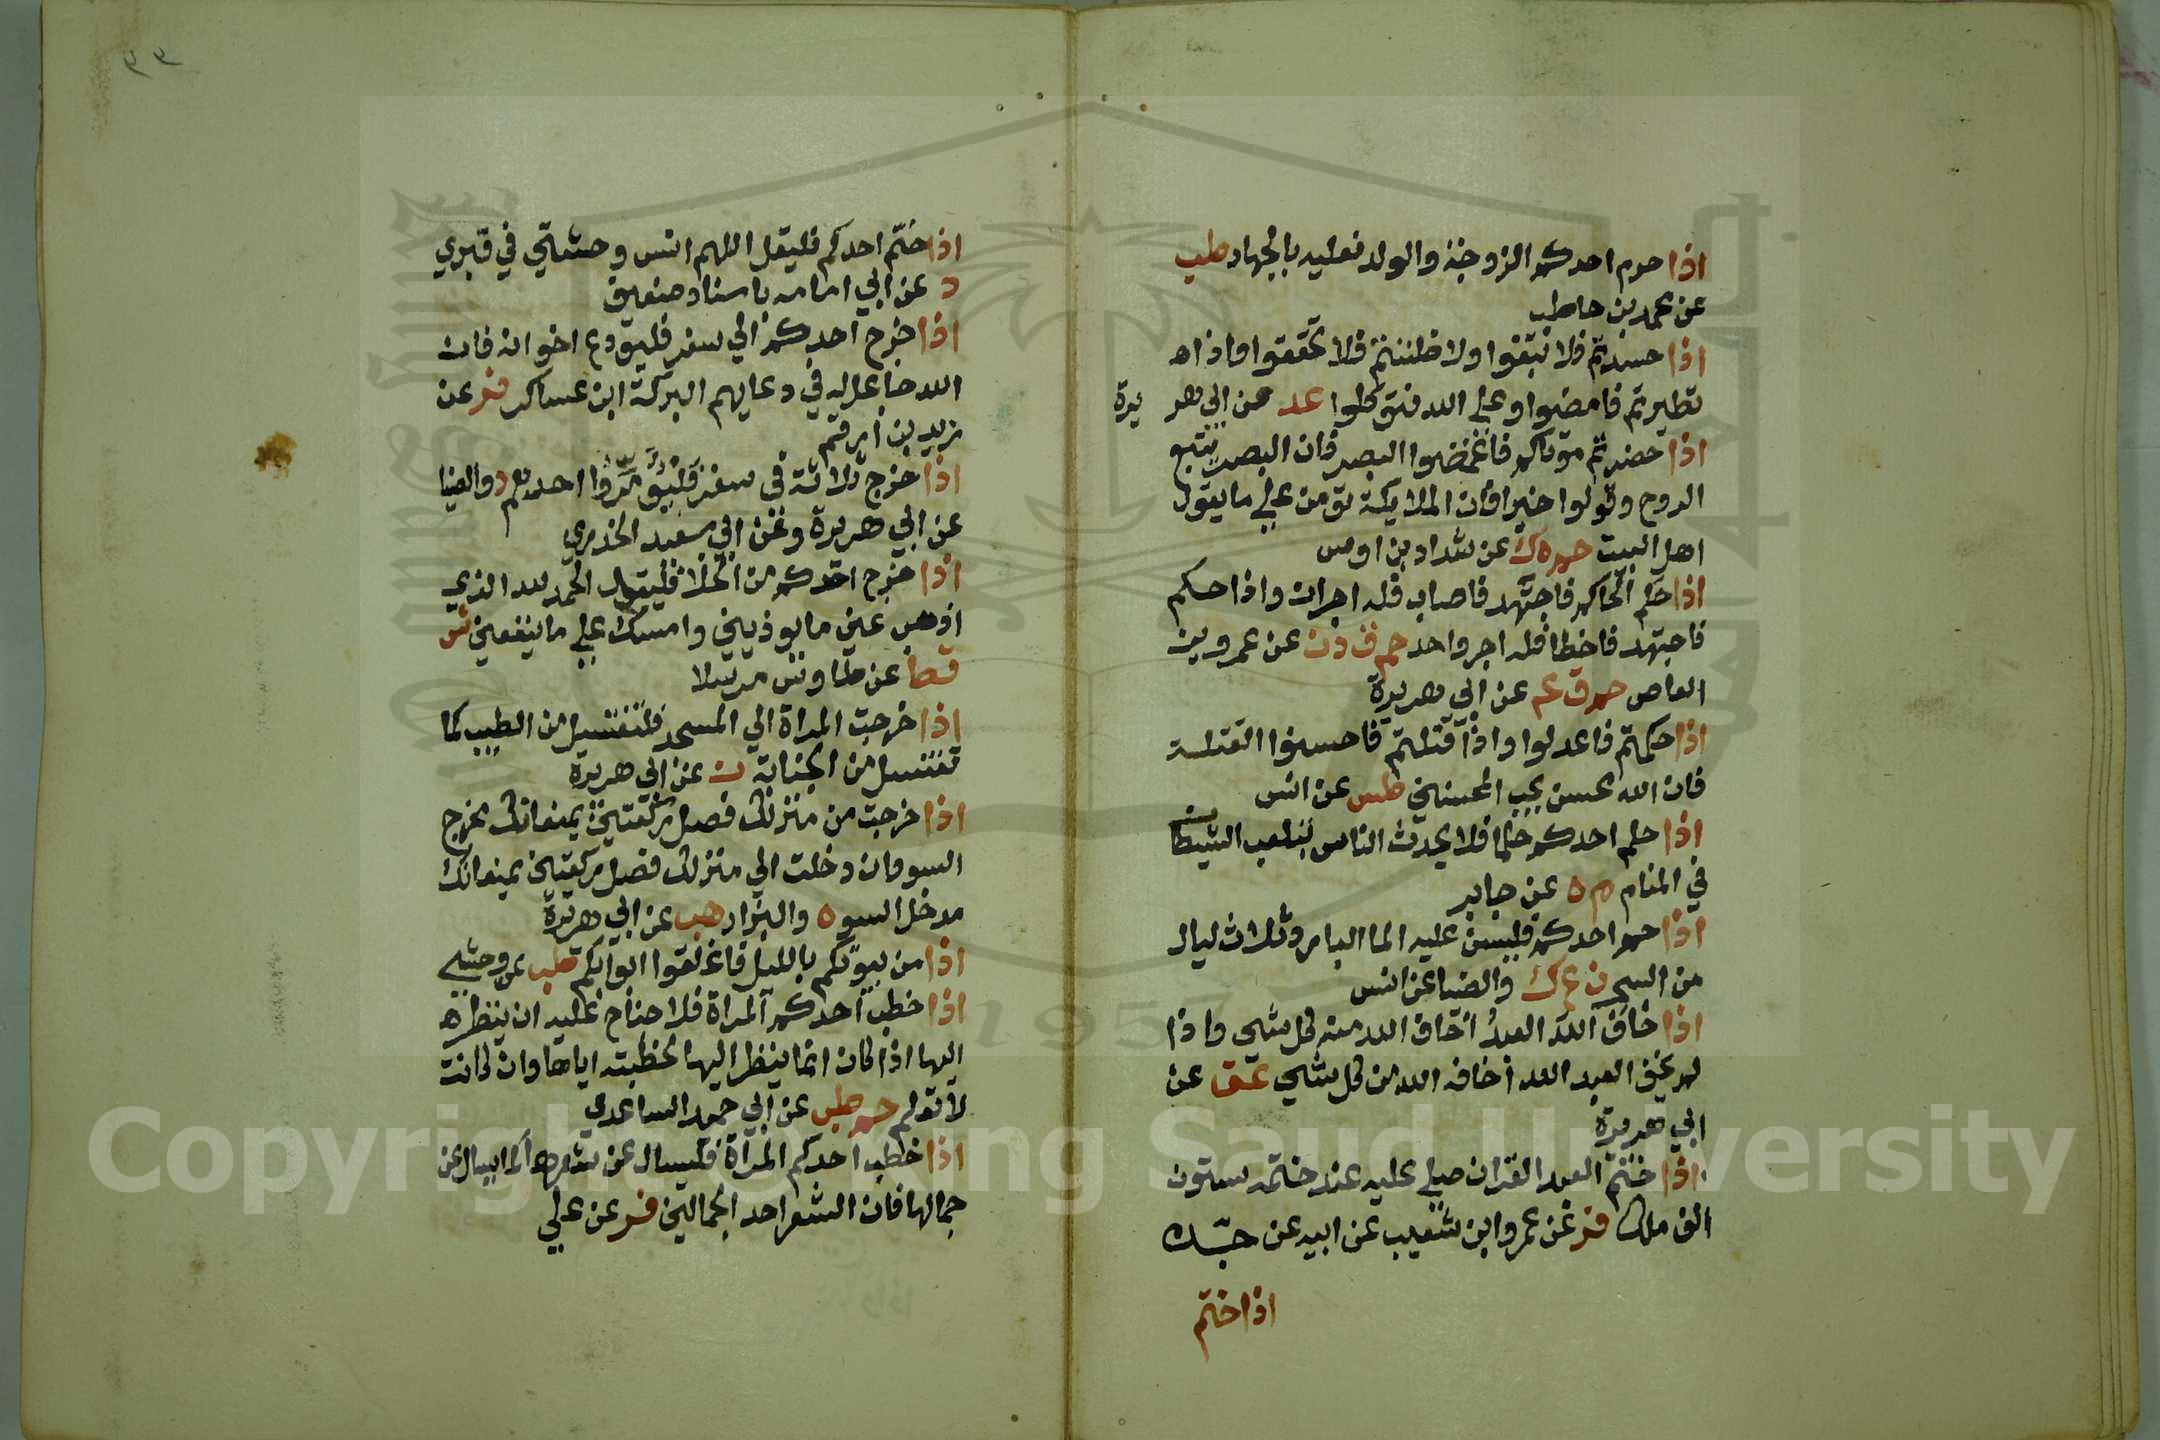 اذا حرم احدكم الزوجة والولد فعليه بالجهاد طب
عن محمد بن حاطب
اذا حسدتم فلا تبغوا ولا ظننتم فلا تحققوا واذا
تطيرتم فامضوا وعلى الله فتوكلوا عد عن ابي هريرة
اذا حضرتم موتاكم فاغمضوا البصر فان البصر يتبع
الروح وقولوا خيرا فان الملايكة تومن على ما يقول
اهل البيت حم ه ك عن شداد بن اوس
اذا حكم الحاكم فاجتهد فاصاب فله اجران واذا حكم
فاجتهد فاخطا فله اجر واحد حم ق د ن عن عمرو بن
العاص حم ق عم عن ابي هريرة
اذا حكمتم فاعدلوا واذا قتلتم فاحسنوا القتلة
فان الله محسن يحب المحسنين طس عن انس
اذا حلم احدكم حلما فلا يحدث الناس بتلعب الشيطان
في المنام م ه عن جابر
اذا حم احدكم فليسن عليه الما البارد ثلاث ليال
من السحر ن ع ك والضيا عن انس
اذا خاف الله العبد اخاف الله منه كل شي واذا
لم يخف العبد الله اخافه الله من كل شي عق عن
ابي هريرة
اذا ختم العبد القران صلى عليه عند ختمه ستون
الف ملك فر عن عمرو ابن شعيب عن ابيه عن جده
اذا ختم
اذا ختم احدكم فليقل اللهم انس وحشتي في قبري
عن ابي امامه باسناد ضعيف
اذا خرج احدكم الي سفر فليودع اخوانه فان
الله جاعل له في دعايهم البركة ابن عساكر فر عن
زيد بن ارقم
اذا خرج ثلاثة في سفر فليومروا احدهم د والضيا
عن ابي هريرة وعن ابي سعيد الخدري
اذا خرج احدكم من الخلا فليقل الحمد لله الذي
اذهب عني ما يوذيني وامسك علي ما ينفعني ش
قط عن طاوس مرسلا
اذا خرجت المراة الي المسجد فلتغتسل من الطيب كما
تغتسل من الجنابة ن عن ابي هريرة
اذا خرجت من منزلك فصل ركعتين يمنعانك مخرج
السو وان دخلت الي منزلك فصل ركعتين يمنعانك
مدخل السوه والبزار هب عن ابي هريرة
اذا من بيوتكم بالليل فاغلقوا ابوابكم طب عن وحشي
اذا خطب احدكم المراة فلا جناح عليه ان ينظر
اليها اذا كان انما ينظر اليها لخطبته اياها وان كانت
لا تعلم حم طب عن ابي حميد الساعدي
اذا خطب احدكم المراة فليسال عن شعرها كما يسال عن
جمالها فان الشعر احد الجمالين فر عن علي
Copyright © King Saud University
1957